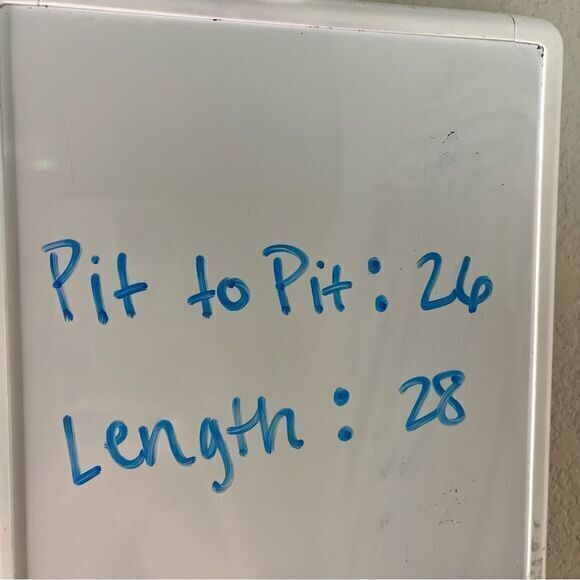 Pit to Pit: 26
Length: 28